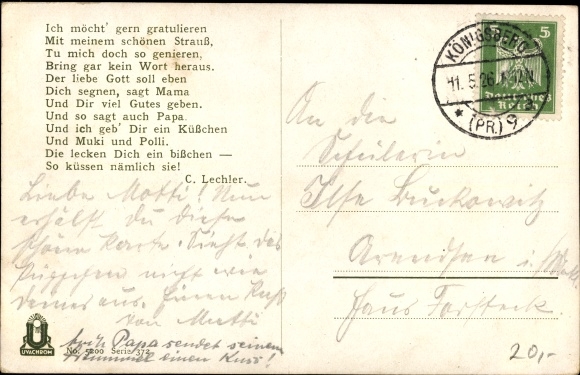 Ich möcht' gern gratulieren
Mit meinem schönen Strauß,
Tu mich doch so genieren,
Bring gar kein Wort heraus.
Der liebe Gott soll eben
Dich segnen, sagt Mama
Und Dir viel Gutes geben.
Und so sagt auch Papa.
Und ich geb' Dir ein Küßchen
Und Muki und Polli.
Die lecken Dich ein bißchen —
So küssen nämlich sie!
C. Lechler.
Liebe Motti! Nun
erhälst du diese
schöne Karte. Sieht das
Püppchen nicht wie
deines aus. Einen Kuß
von Mutti
Papa sendet seinem
einen Kuss!
UVACHROM
No. 5200 Serie 372
KÖNIGSBERG
11.5.26
* (PR.) 9
5
Deutsches
Reich
An die
Schülerin
Ilse Buckowitz
Arendsee i/
Haus Forsteck.
20,-